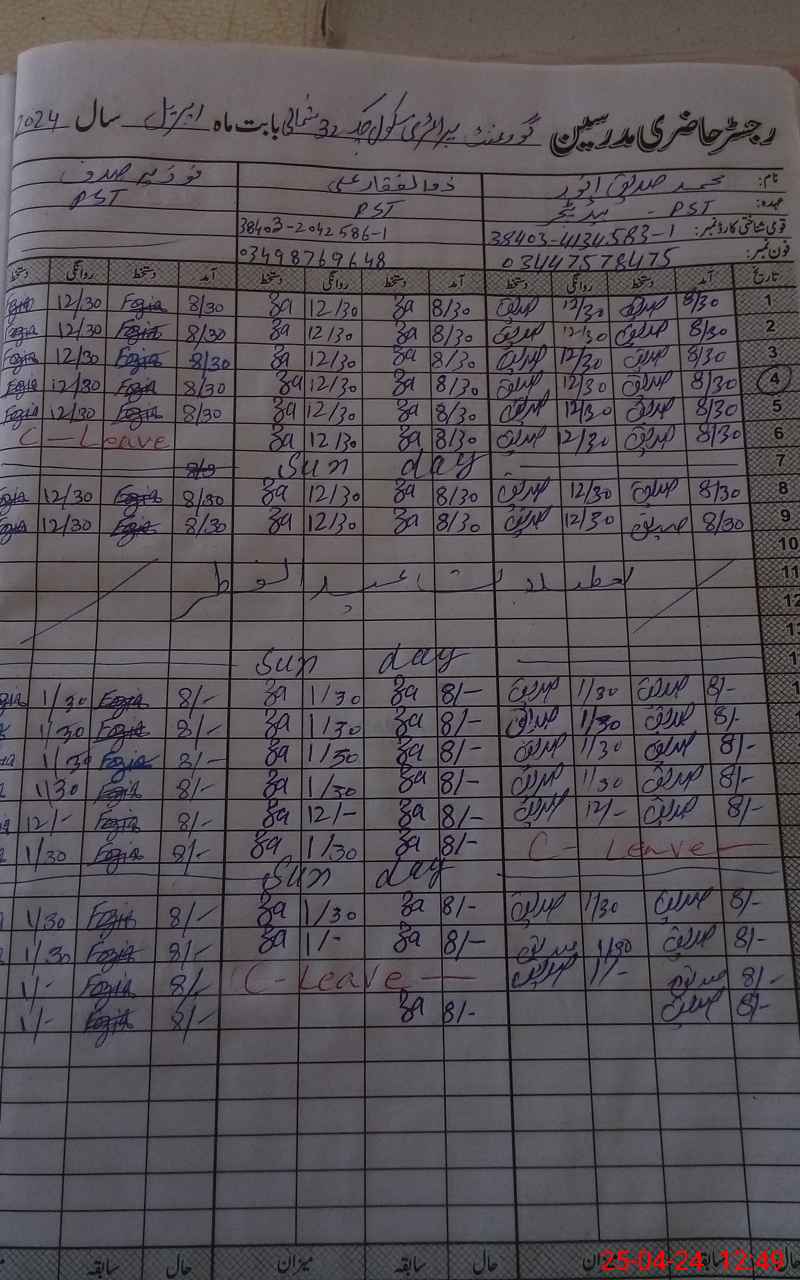 رجسٹر حاضری مدرسین گورنمنٹ پرائمری سکول چک 32 شمالی بابت ماہ اپریل سال 2024
نام: محمد صدیق انور ذوالفقار علی فوزیہ صدف
عہدہ: PST - ہیڈ ٹیچر PST PST
قومی شناختی کارڈ نمبر: 38403-4134583-1 38403-2042586-1
فون نمبر: 03447578475 03498769648
تاریخ آمد دستخط روانگی دستخط آمد دستخط روانگی دستخط آمد دستخط روانگی دستخط
1 8/30 صدیق 12/30 صدیق 8/30 za 12/30 za 8/30 Fozia 12/30 Fozia
2 8/30 صدیق 12/30 صدیق 8/30 za 12/30 za 8/30 Fozia 12/30 Fozia
3 8/30 صدیق 12/30 صدیق 8/30 za 12/30 za 8/30 Fozia 12/30 Fozia
4 8/30 صدیق 12/30 صدیق 8/30 za 12/30 za 8/30 Fozia 12/30 Fozia
5 8/30 صدیق 12/30 صدیق 8/30 za 12/30 za 8/30 Fozia 12/30 Fozia
6 8/30 صدیق 12/30 صدیق 8/30 za 12/30 za C-Leave
7 Sun day
8 8/30 صدیق 12/30 صدیق 8/30 za 12/30 za 8/30 Fozia 12/30 Fozia
9 8/30 صدیق 12/30 صدیق 8/30 za 12/30 za 8/30 Fozia 12/30 Fozia
10
11 تعطیلات عید الفطر
12
Sun day
8/- صدیق 1/30 صدیق 8/- za 1/30 za 8/- Fozia 1/30
8/- صدیق 1/30 صدیق 8/- za 1/30 za 8/- Fozia 1/30
8/- صدیق 1/30 صدیق 8/- za 1/30 za 8/- Fozia 1/30
8/- صدیق 1/30 صدیق 8/- za 1/30 za 8/- Fozia 1/30
8/- صدیق 12/- صدیق 8/- za 12/- za 8/- Fozia 12/-
C-Leave 8/- za 1/30 za 8/- Fozia 1/30
Sun day
8/- صدیق 1/30 صدیق 8/- za 1/30 za 8/- Fozia 1/30
8/- صدیق 1/30 صدیق 8/- za 1/- za 8/- Fozia 1/30
8/- صدیق 1/- صدیق C-Leave 8/- Fozia 1/-
8/- صدیق 8/- za 8/- Fozia 1/-
حال سابقہ میزان حال سابقہ میزان حال سابقہ
25-04-24 12:49